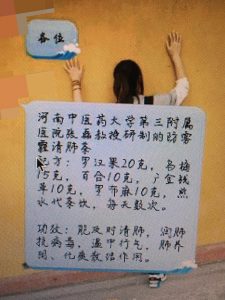 各位
河南中医药大学第三附属
医院张磊教授研制的防雾
霾清肺茶
配方：罗汉果20克，乌梅
15克，百合10克，广金钱
草10克，罗布麻10克，煎
水代茶饮，每天数次。
功效：能及时清肺，润肺
抗病毒，通中行气，肺养
阴，化痰敛活作用。